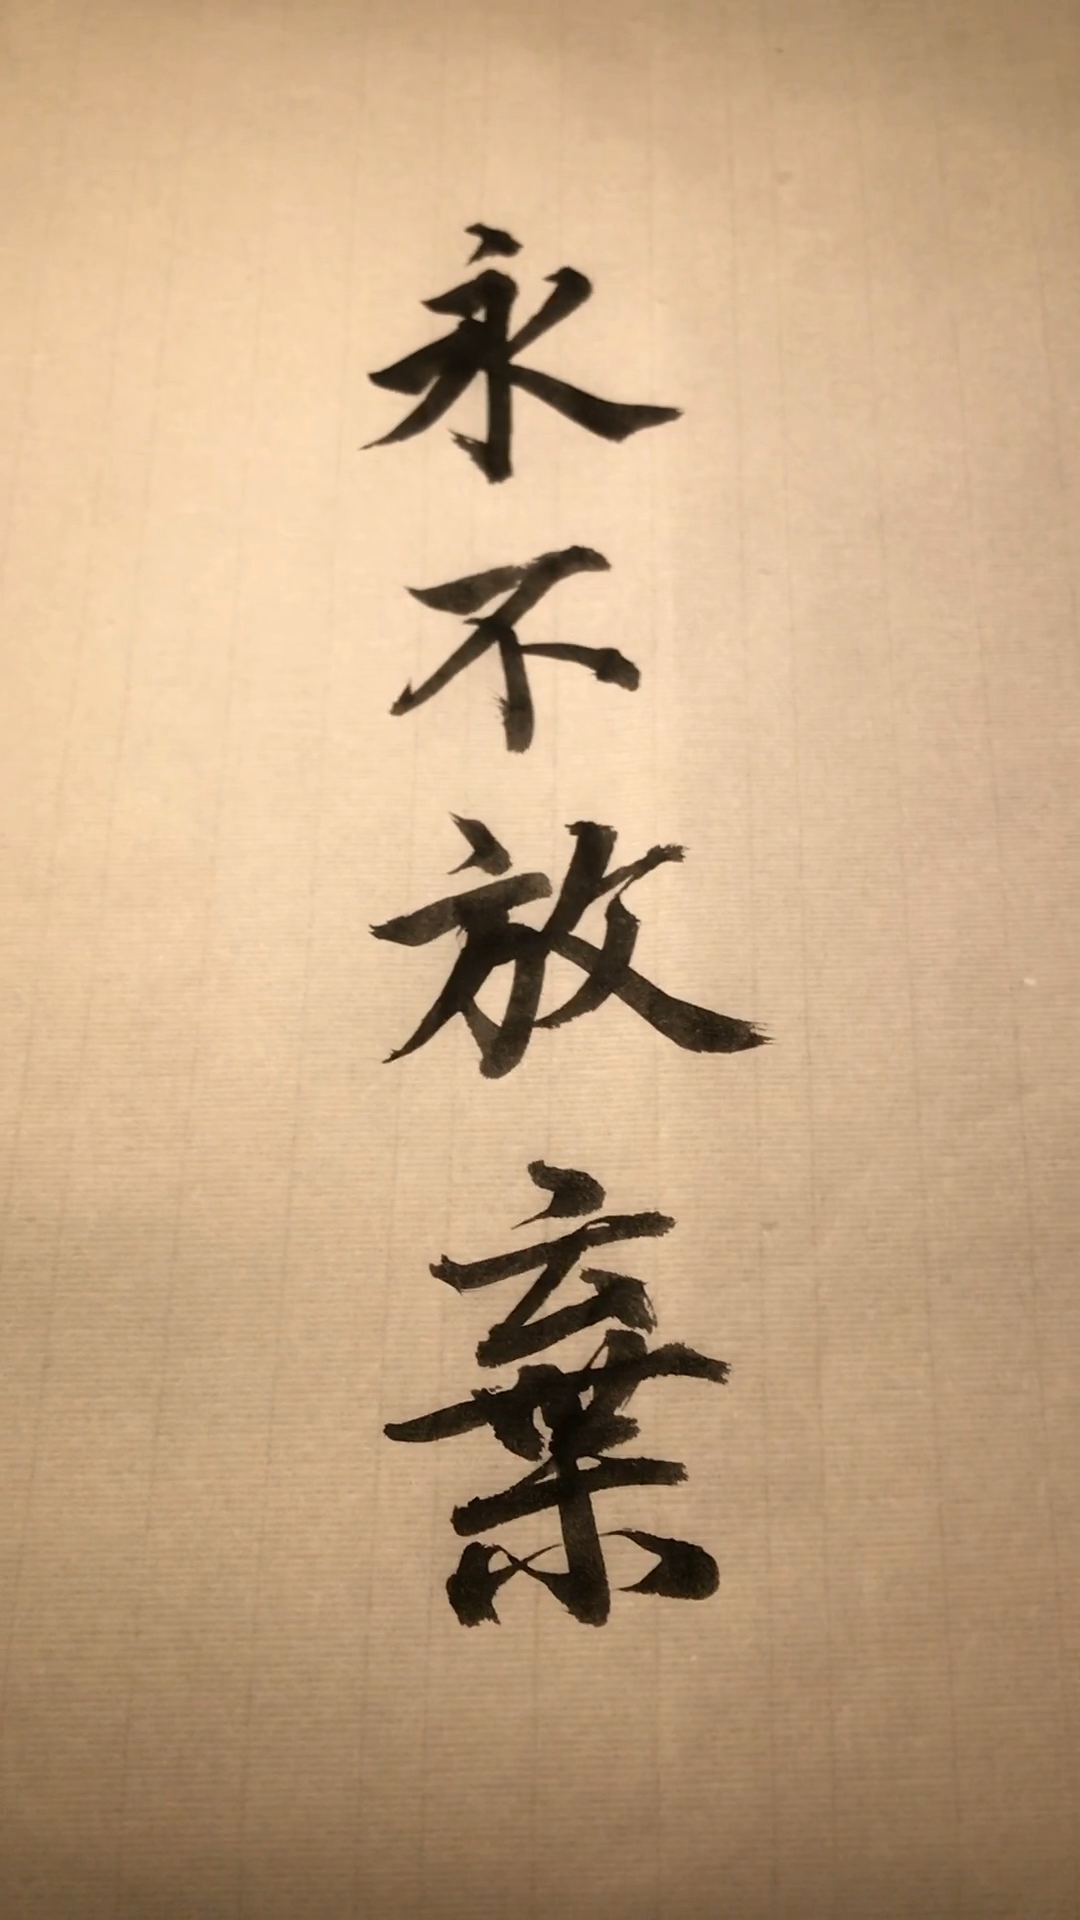 永不放棄